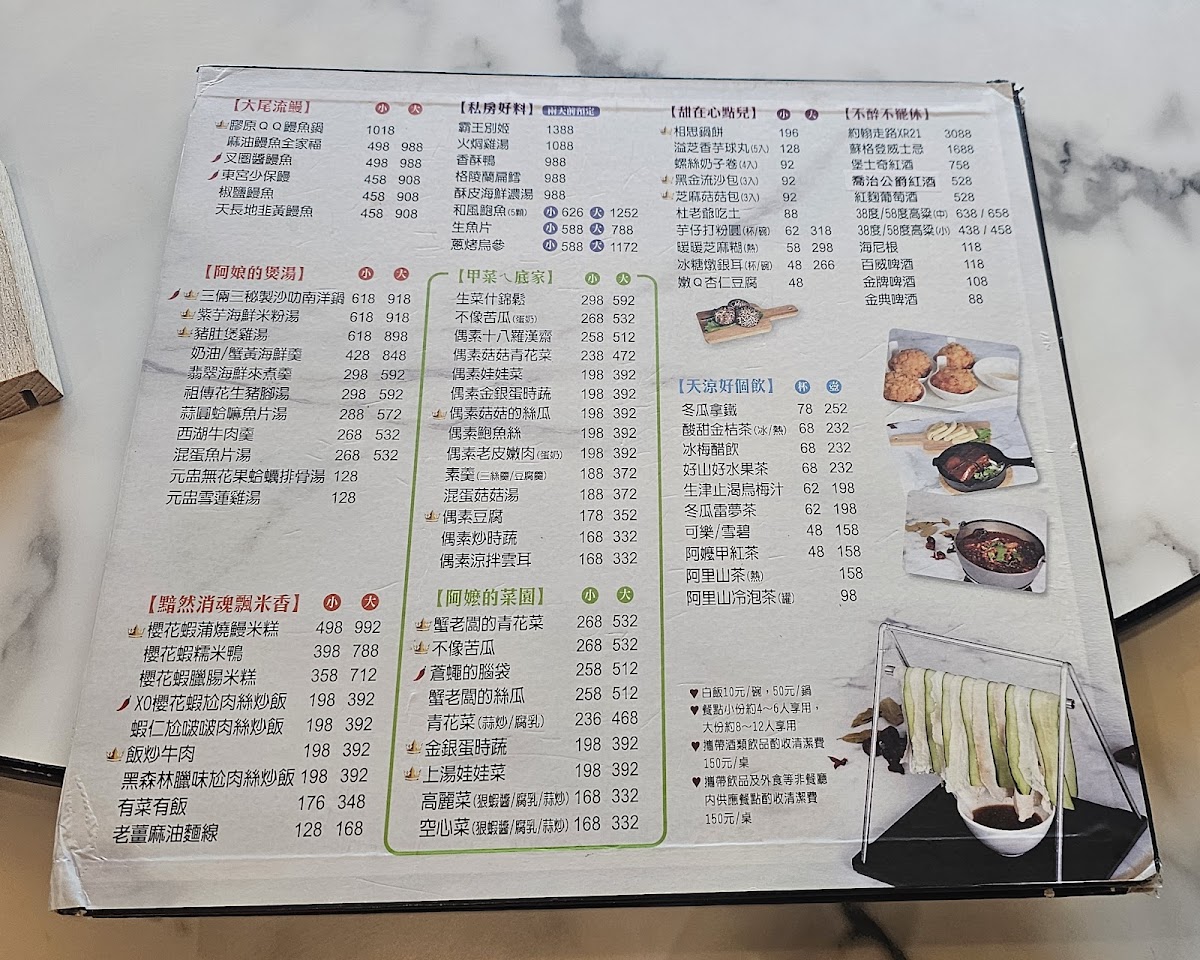 【大尾流鰻】 小 大
膠原QQ鰻魚鍋 1018
麻油鰻魚全家福 498 988
叉圈醬鰻魚 498 988
東宮少保鰻 458 908
椒鹽鰻魚 458 908
天長地韭黃鰻魚 458 908
【阿娘的煲湯】 小 大
三倆三秘製沙叻南洋鍋 618 918
紫芋海鮮米粉湯 618 918
豬肚煲雞湯 618 898
奶油/蟹黃海鮮羹 428 848
翡翠海鮮來煮羹 298 592
祖傳花生豬腳湯 298 592
蒜圓蛤嘛魚片湯 288 572
西湖牛肉羹 268 532
混蛋魚片湯 268 532
元盅無花果蛤蠣排骨湯 128
元盅雪蓮雞湯 128
【黯然消魂飄米香】 小 大
櫻花蝦蒲燒鰻米糕 498 992
櫻花蝦糯米鴨 398 788
櫻花蝦臘腸米糕 358 712
XO櫻花蝦尬肉絲炒飯 198 392
蝦仁尬啵啵肉絲炒飯 198 392
飯炒牛肉 198 392
黑森林臘味尬肉絲炒飯 198 392
有菜有飯 176 348
老薑麻油麵線 128 168
【私房好料】 兩天前預定
霸王別姬 1388
火焗雞湯 1088
香酥鴨 988
格陵蘭扁鱈 988
酥皮海鮮濃湯 988
和風鮑魚(5顆) 小 626 大 1252
生魚片 小 588 大 788
蔥烤烏參 小 588 大 1172
【甲菜ㄟ底家】 小 大
生菜什錦鬆 298 592
不像苦瓜(蛋奶) 268 532
偶素十八羅漢齋 258 512
偶素菇菇青花菜 238 472
偶素娃娃菜 198 392
偶素金銀蛋時蔬 198 392
偶素菇菇的絲瓜 198 392
偶素鮑魚絲 198 392
偶素老皮嫩肉(蛋奶) 198 392
素羹(三絲羹/豆腐羹) 188 372
混蛋菇菇湯 188 372
偶素豆腐 178 352
偶素炒時蔬 168 332
偶素涼拌雲耳 168 332
【阿嬤的菜園】 小 大
蟹老闆的青花菜 268 532
不像苦瓜 268 532
蒼蠅的腦袋 258 512
蟹老闆的絲瓜 258 512
青花菜(蒜炒/腐乳) 236 468
金銀蛋時蔬 198 392
上湯娃娃菜 198 392
高麗菜(狠蝦醬/腐乳/蒜炒) 168 332
空心菜(狠蝦醬/腐乳/蒜炒) 168 332
【甜在心點兒】 小 大
相思鍋餅 196
溢芝香芋球丸(5入) 128
螺絲奶子卷(4入) 92
黑金流沙包(3入) 92
芝麻菇菇包(3入) 92
杜老爺吃土 88
芋仔打粉圓(杯/碗) 62 318
暖暖芝麻糊(熱) 58 298
冰糖燉銀耳(杯/碗) 48 266
嫩Q杏仁豆腐 48
【天涼好個飲】 杯 壺
冬瓜拿鐵 78 252
酸甜金桔茶(冰/熱) 68 232
冰梅醋飲 68 232
好山好水果茶 68 232
生津止渴烏梅汁 62 198
冬瓜雷夢茶 62 198
可樂/雪碧 48 158
阿嬤甲紅茶 48 158
阿里山茶(熱) 158
阿里山冷泡茶(罐) 98
♥白飯10元/碗，50元/鍋
♥餐點小份約4～6人享用，
大份約8～12人享用
♥攜帶酒類飲品酌收清潔費
150元/桌
♥攜帶飲品及外食等非餐廳
內供應餐點酌收清潔費
150元/桌
【不醉不罷休】
約翰走路XR21 3088
蘇格登威士忌 1688
堡士奇紅酒 758
喬治公爵紅酒 528
紅麴葡萄酒 528
38度/58度高粱(中) 638 / 658
38度/58度高粱(小) 438 / 458
海尼根 118
百威啤酒 118
金牌啤酒 108
金典啤酒 88